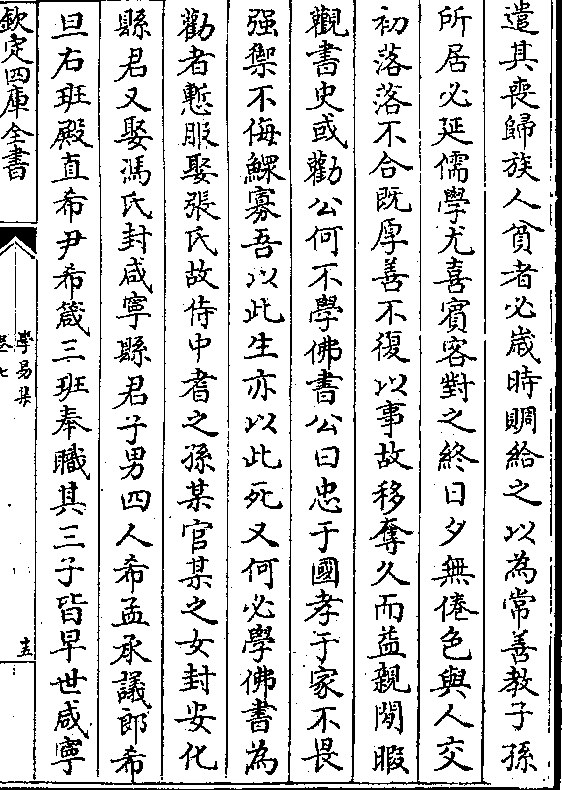 遣其喪歸族人貧者必嵗時賙給之以為常善教子孫
所居必延儒學尤喜賓客對之終日夕無倦色與人交
初落落不合既厚善不復以事故移奪久而益親閒暇
觀書史或勸公何不學佛書公曰忠于國孝于家不畏
强禦不侮鰥寡吾以此生亦以此死又何必學佛書為
勸者慙服娶張氏故侍中耆之孫某官某之女封安化
縣君又娶馮氏封咸寧縣君子男四人希孟承議郎希
旦右班殿直希尹希箴三班奉職其三子皆早世咸寧
欽定四庫全書
學易集
卷七
十五